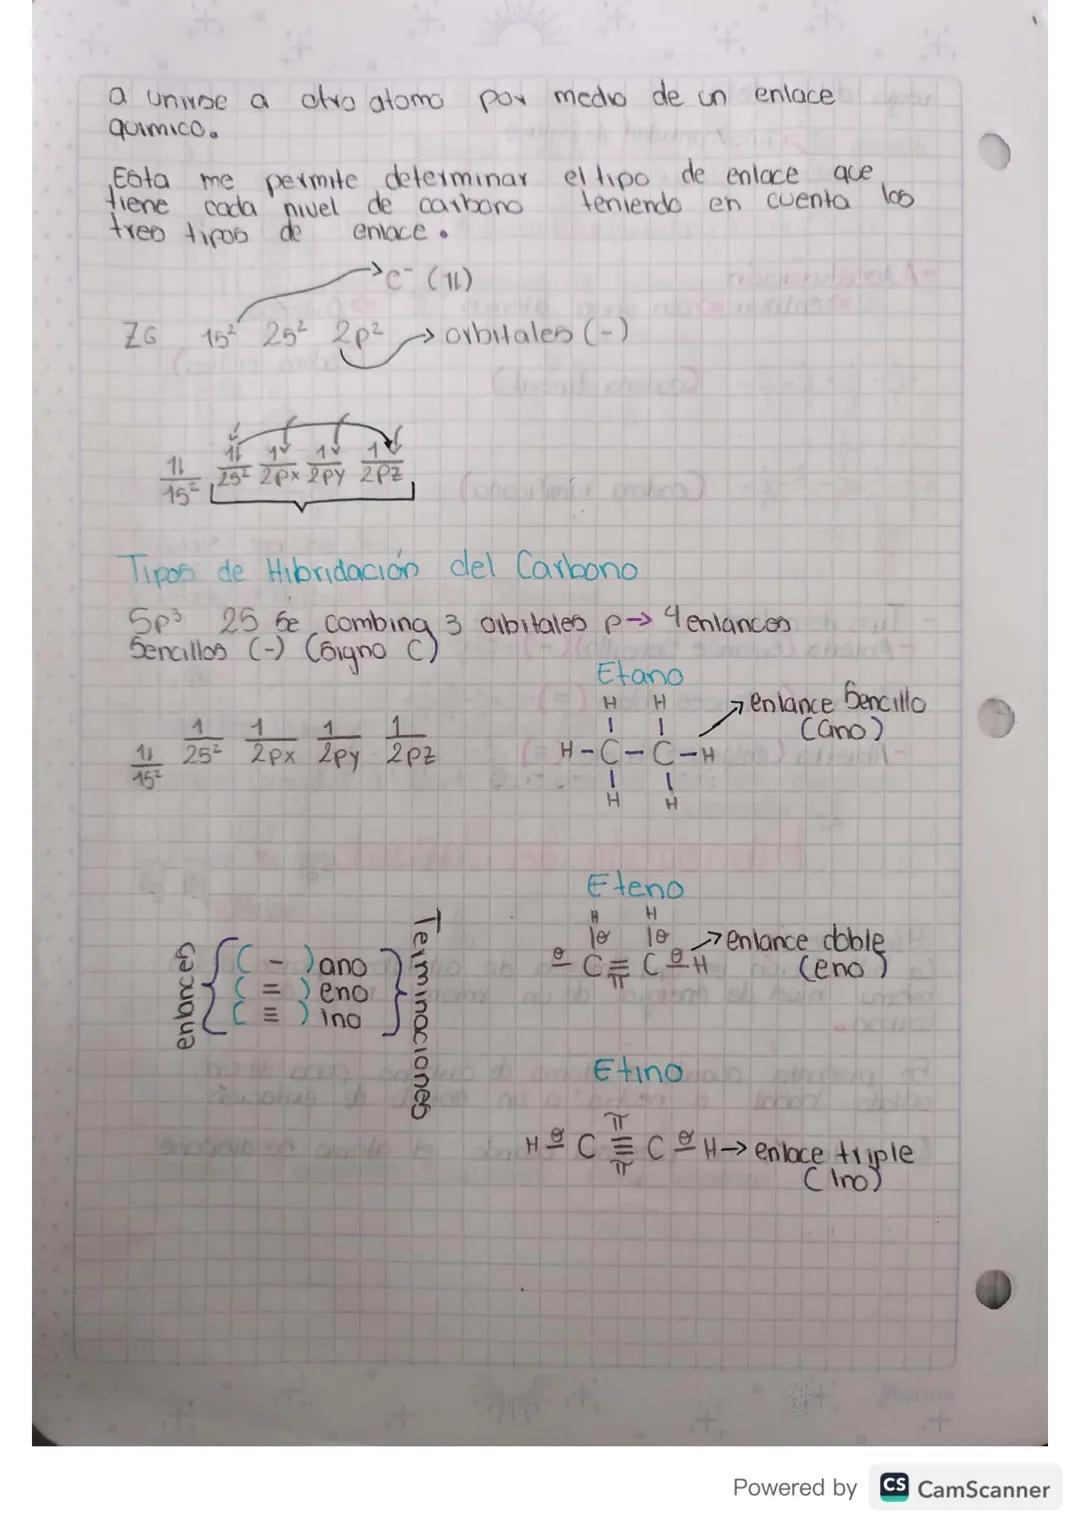 a unirse a otro atomo por medio de un enlace
quimico.
Esta me permite determinar el tipo de enlace que
tiene cada nivel de carbono teniendo en cuenta los
tres tipos de enlace.
e⁻ (1l)
Z6 1s² 2s² 2p² → orbitales (-)
1l 1l 1 1 1
1s² 2s² 2px 2py 2pz
Tipos de Hibridación del Carbono
Sp³ 2S se combina 3 orbitales p → 4 enlances
Sencillos (-) (Signo C)
Etano
H H → enlance Sencillo
(ano)
1l 1 1 1 1
1s² 2s² 2px 2py 2pz
H - C - C - H
H H
Eteno
H H
lσ lσ → enlance doble
σ C = C σ H (eno)
π
enlances
( - ) ano
( = ) eno
( ≡ ) ino
Terminaciones
Etino
π
H σ C ≡ C σ H → enlace triple
π
(Ino)
Powered by CS CamScanner